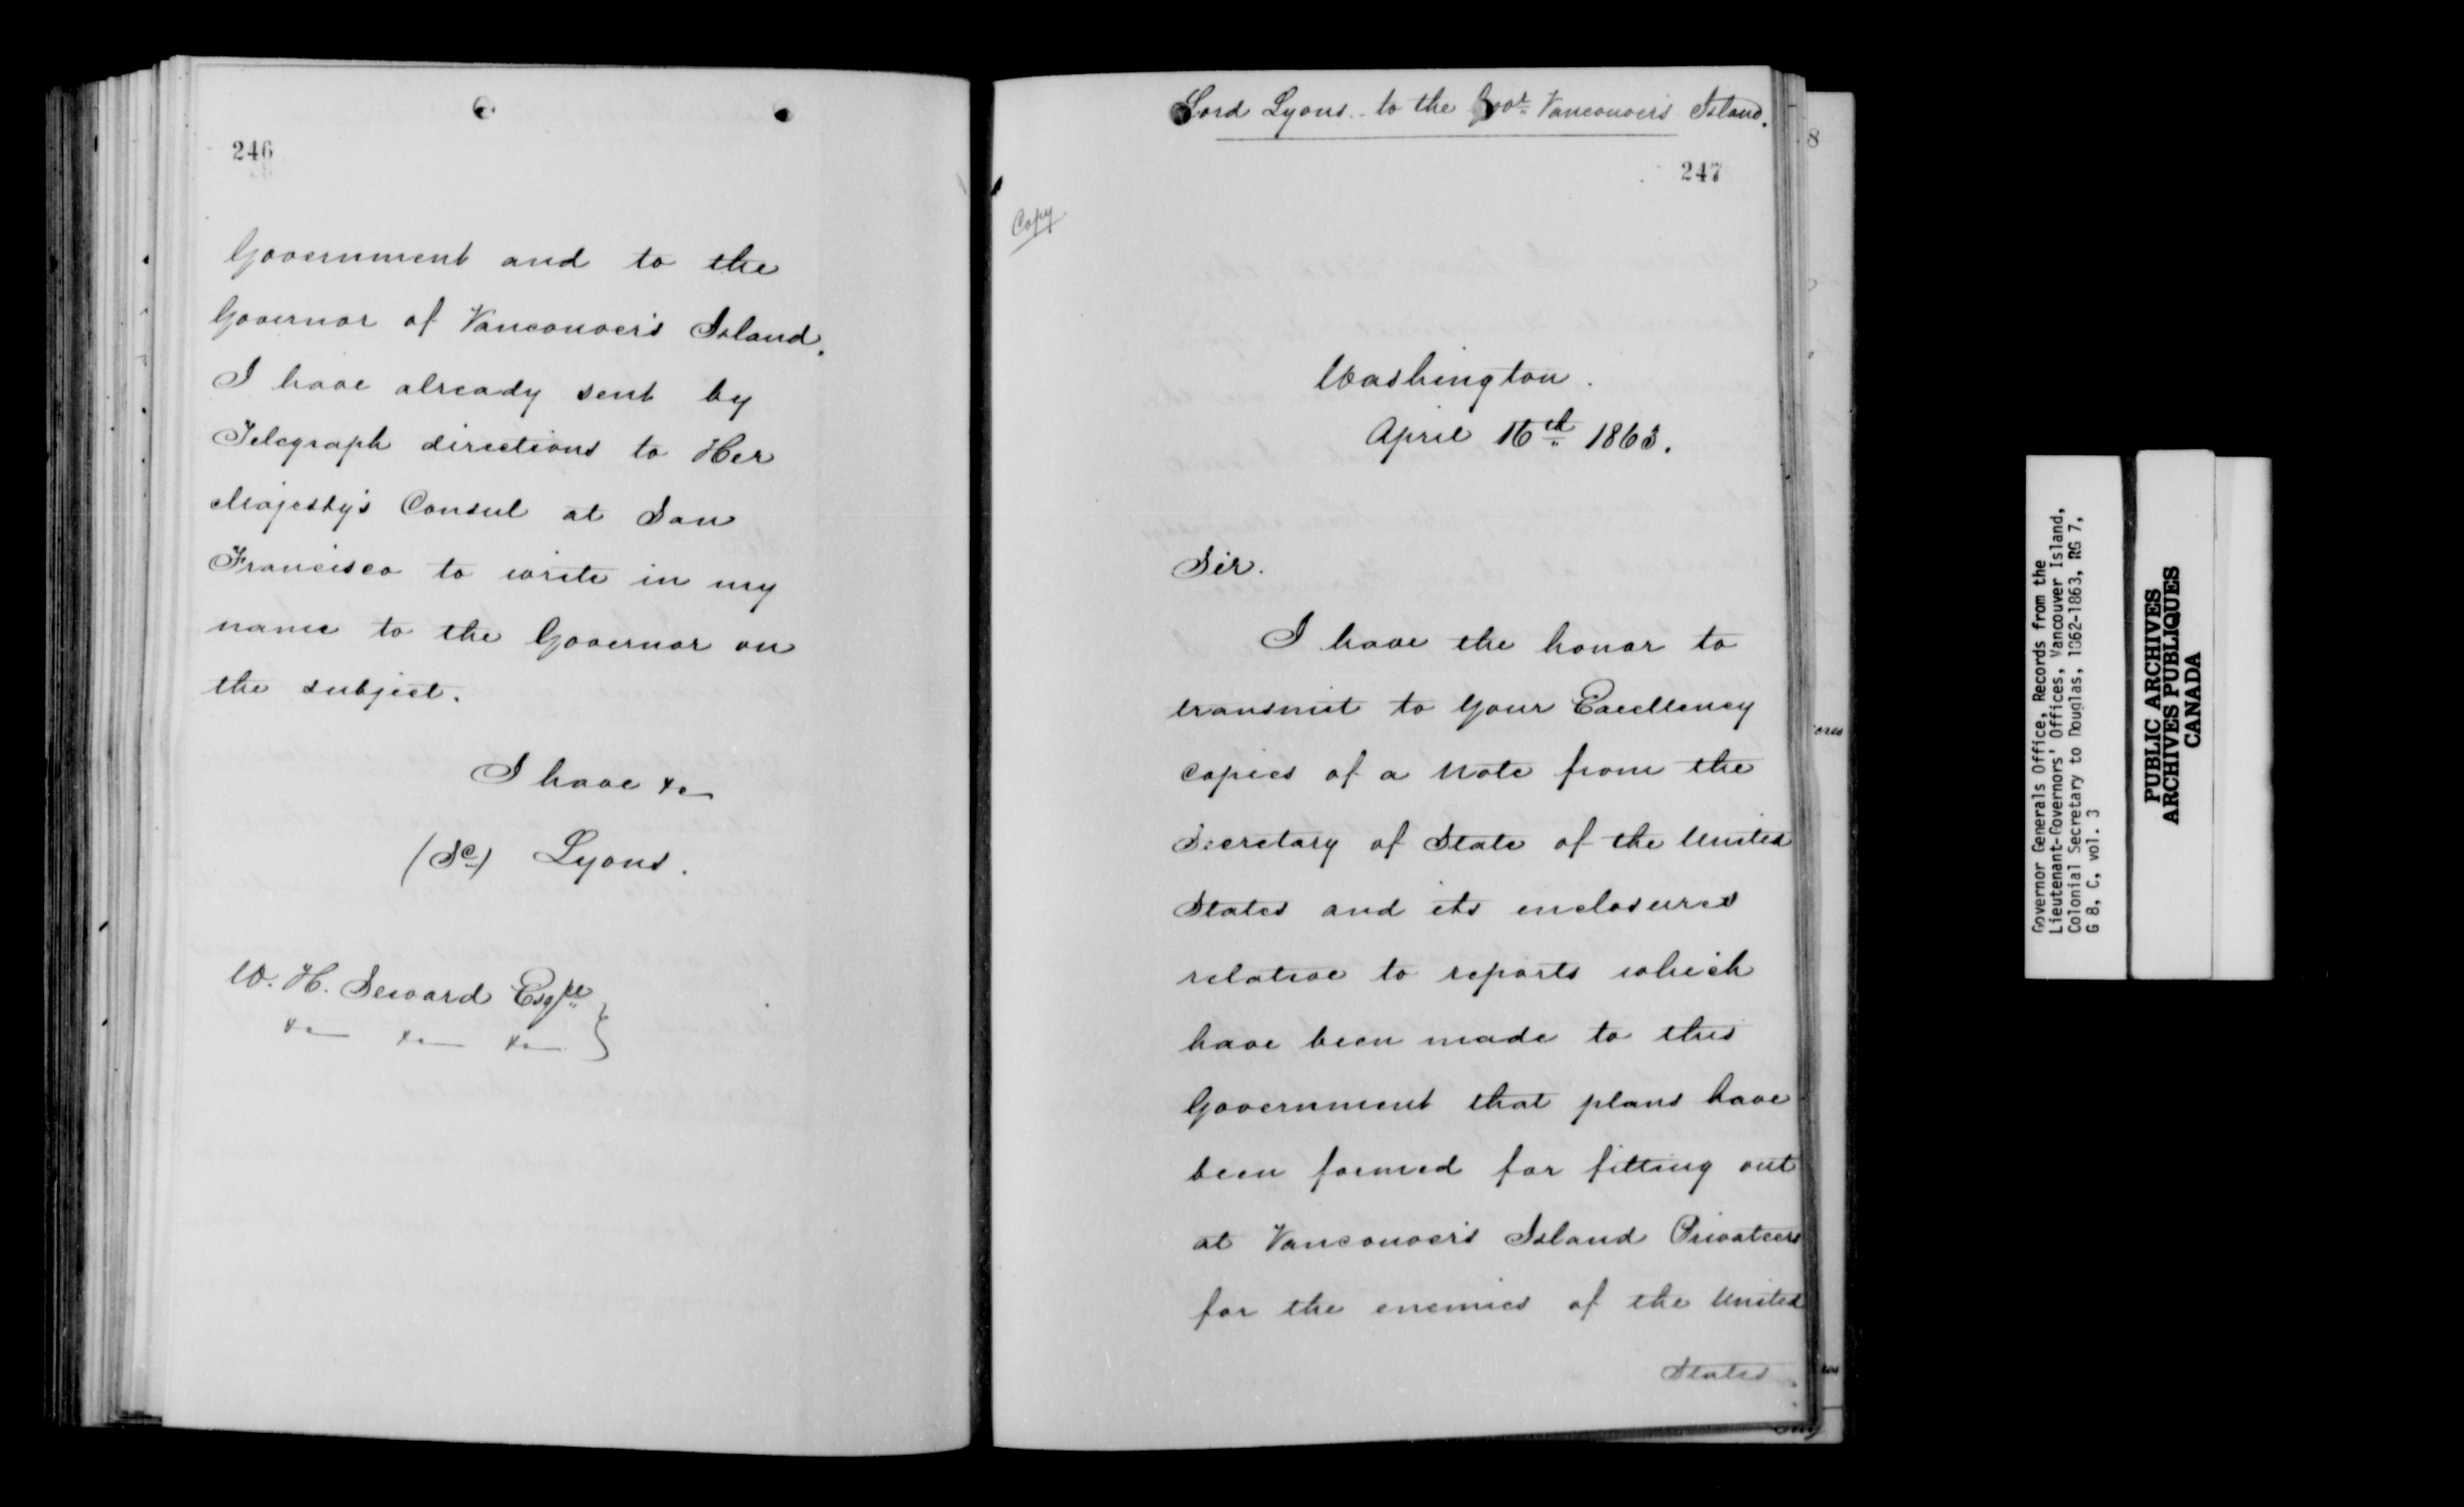 246
Government and to the
Governor of Vancouver's Island.
I have already sent by
Telegraph directions to Her
Majesty's Consul at San
Francisco to write in my
name to the Governor on
the subject.
I have &c
(Sd) Lyons.
W. H. Seward Esqre
&c &c &c
Lord Lyons to the Govr Vancouver's Island.
247
Copy.
Washington.
April 16th 1863.
Sir.
I have the honor to
transmit to Your Excellency
copies of a Note from the
Secretary of State of the United
States and its enclosures
relative to reports which
have been made to this
Government that plans have
been formed for fitting out
at Vancouver's Island Privateers
for the enemies of the United
States
8
Governor Generals Office, Records from the
Lieutenant-Governors' Offices, Vancouver Island,
Colonial Secretary to Douglas, 1862-1863, RG 7,
G 8, C, vol. 3
PUBLIC ARCHIVES
ARCHIVES PUBLIQUES
CANADA